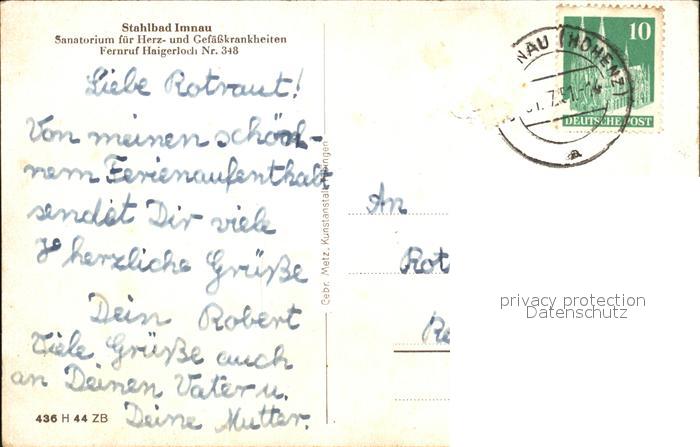 Stahlbad Imnau
Sanatorium für Herz- und Gefäßkrankheiten
Fernruf Haigerloch Nr. 348
Liebe Rotraut!
Von meinen schön-
nem Ferienaufenthalt
sendet Dir viele
herzliche Grüße
Dein Robert
Viele Grüße auch
an Deinen Vater u.
Deine Mutter.
436 H 44 ZB
Gebr. Metz, Kunstanstalt, Tübingen
NAU (HOHENZ)
10
DEUTSCHE POST
a
An
Rot
Re
privacy protection
Datenschutz